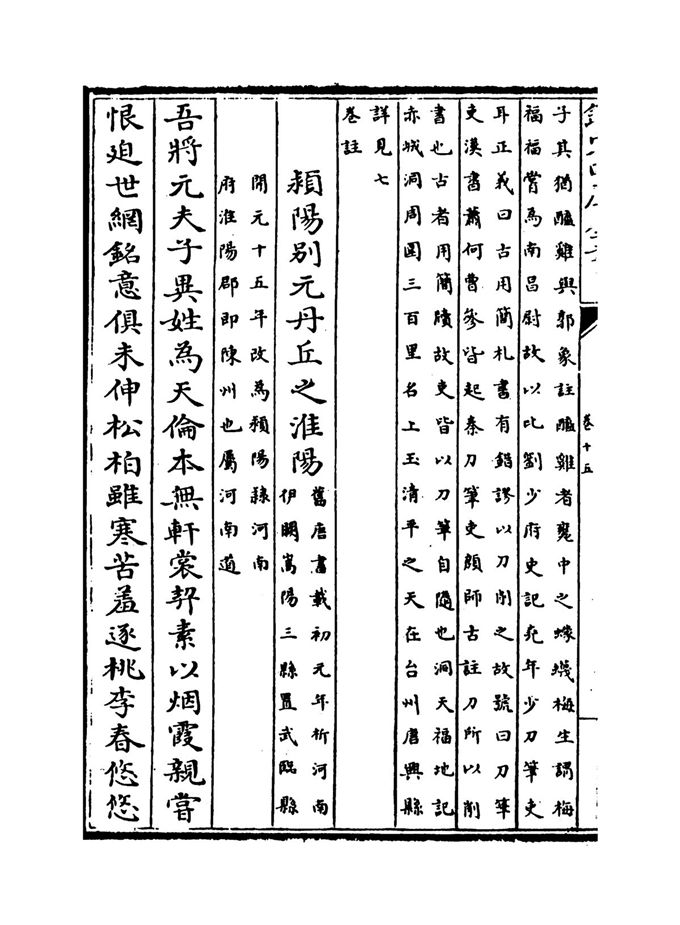 子其猶醯雞與郭象註醯雞者甕中之蠛蠓梅生謂梅
福福嘗為南昌尉故以比劉少府史記堯年少刀筆吏
耳正義曰古用簡札書有錯謬以刀削之故號曰刀筆
吏漢書蕭何曹參皆起秦刀筆吏顔師古註刀所以削
書也古者用簡牘故吏皆以刀筆自隨也洞天福地記
赤城洞周圍三百里名上玉清平之天在台州唐興縣
詳見七
巻註
潁陽别元丹丘之淮陽
舊唐書載初元年析河南
伊闕嵩陽三縣置武臨縣
開元十五年改為潁陽縣𨽻河南
府淮陽郡即陳州也屬河南道
吾將元夫子異姓為天倫本無軒裳契素以烟霞親嘗
恨迫世網銘意俱未伸松柏雖寒苦羞逐桃李春悠悠
巻十五